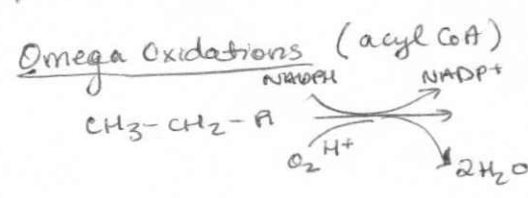 Omega Oxidations (acyl CoA)
NADPH NADP+
CH3-CH2-R
O2 H+ 2H2O